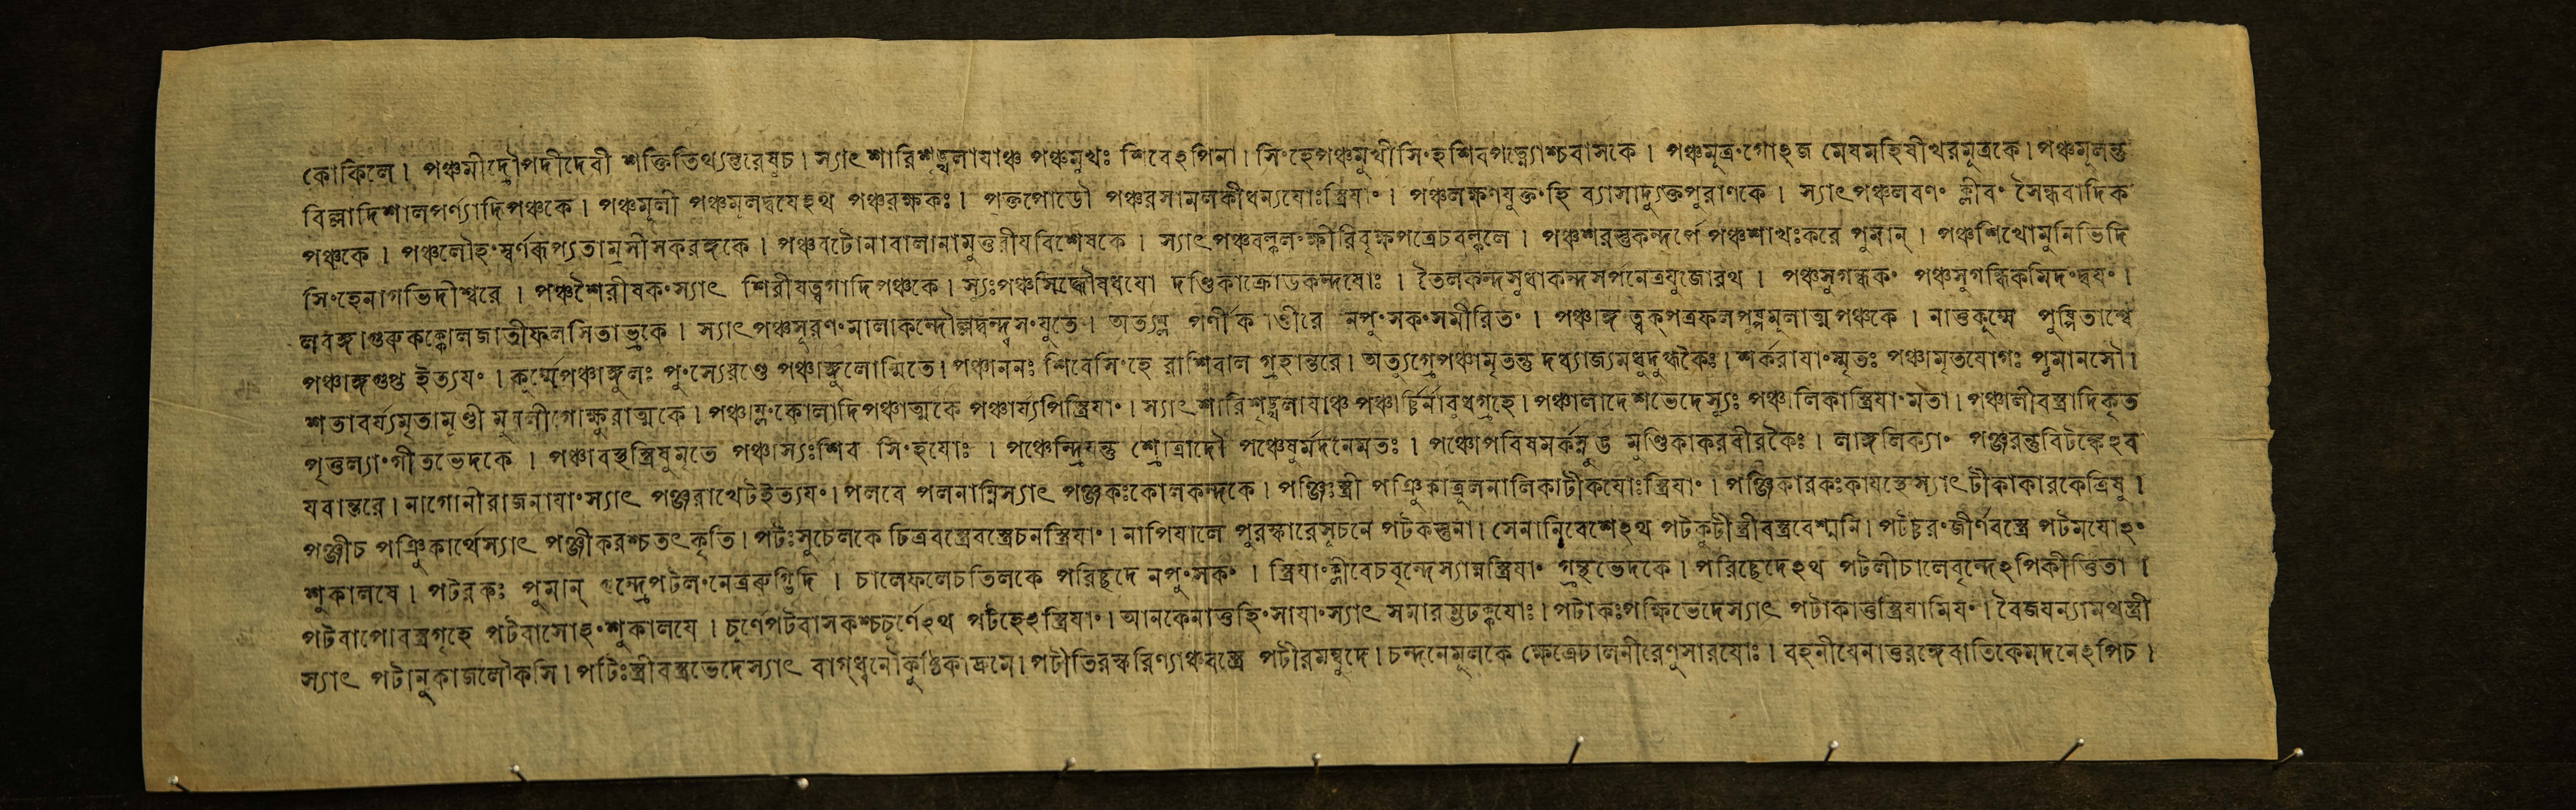 কোকিলে। পঞ্চমীদ্রৌপদীদেবী শক্তিতিথ্যন্তরেষুচ। স্যাৎ শারিশৃঙ্খলাযাঞ্চ পঞ্চমুখঃ শিবেঽপিনা। সিংহেপঞ্চমুখীসিংহশিবপত্ন্যোশ্চবাসকে। পঞ্চমূত্রংগোঽজ মেষমহিষীখরমূত্রকে। পঞ্চমূলন্তু
বিল্লাদিশালপর্ণ্যাদিপঞ্চকে। পঞ্চমূলী পঞ্চমূলদ্বযেঽথ পঞ্চরক্ষকঃ। পক্তপোডৌ পঞ্চরসামলকীধন্যযোঃস্ত্রিযাং। পঞ্চলক্ষণযুক্তংহি ব্যাসাদ্যুক্তপুরাণকে। স্যাৎপঞ্চলবণং ক্লীবং সৈন্ধবাদিক
পঞ্চকে। পঞ্চলৌহংস্বর্ণরূপ্যতাম্রসীসকরঙ্গকে। পঞ্চবটোনাবালানামুত্তরীযবিশেষকে। স্যাৎপঞ্চবল্কলংক্ষীরিবৃক্ষপত্রেচবল্কলে। পঞ্চশরস্তুকন্দর্পে পঞ্চশাখঃকরে পুমান্। পঞ্চশিখোমুনিভিদি
সিংহেনাগভিদীশ্বরে। পঞ্চশৈরীষকংস্যাৎ শিরীষত্বগাদিপঞ্চকে। স্যুঃপঞ্চসিদ্ধৌষধযো দণ্ডিকাক্রোডকন্দযোঃ। তৈলকন্দসুধাকন্দসর্পনেত্রযুজোরথ। পঞ্চসুগন্ধকং পঞ্চসুগন্ধিকমিদংদ্বযং।
লবঙ্গাগুরুকক্কোলজাতীফলসিতাভ্রকে। স্যাৎপঞ্চসূরণংমালাকন্দৌল্লদ্বন্দ্বসংযুতে। অত্যম্ল পর্ণীকাণ্ডীরে নপুংসকংসমীরিতং। পঞ্চাঙ্গ ত্বক্পত্রফলপুষ্পমূলাত্মপঞ্চকে। নাত্তকূর্ম্মে পুষ্পিতাশ্বে
পঞ্চাঙ্গগুপ্ত ইত্যযং। কূর্ম্মেপঞ্চাঙ্গুলঃ পুংস্যেরণ্ডে পঞ্চাঙ্গুলোন্মিতে। পঞ্চাননঃ শিবেসিংহে রাশিবাল গ্রহান্তরে। অত্যুগ্রেপঞ্চামৃতন্তু দধ্যাজ্যমধুদুগ্ধকৈঃ। শর্করাযাংস্মৃতঃ পঞ্চামৃতযোগঃ পুমানসৌ।
শতাবর্য্যমৃতামুণ্ডী মুষলীগোক্ষুরাত্মকে। পঞ্চাম্লংকোলাদিপঞ্চাত্মকে পঞ্চার্য্যপিস্ত্রিযাং। স্যাৎশারিশৃঙ্খলাযাঞ্চ পঞ্চার্চ্চির্নাবুধগ্রহে। পঞ্চালাদেশভেদেস্যুঃ পঞ্চালিকাস্ত্রিযাংমতা। পঞ্চালীবস্ত্রাদিকৃত
পৃত্তল্যাংগীতভেদকে। পঞ্চাবস্থস্ত্রিষুমৃতে পঞ্চাস্যঃশিব সিংহযোঃ। পঞ্চেন্দ্রিযন্তু শ্রোত্রাদৌ পঞ্চেষুর্মদনেমতঃ। পঞ্চোপবিষমর্কস্নুড মুণ্ডিকাকরবীরকৈঃ। লাঙ্গলিক্যাং পঞ্জরন্তুবিটঙ্কেঽব
যবান্তরে। নাগোনীরাজনাযাংস্যাৎ পঞ্জরাখেটইত্যযং। পলবে পলনাগ্নিস্যাৎ পঞ্জকঃকোলকন্দকে। পঞ্জিঃস্ত্রী পঞ্জিকাতূলনালিকাটীকযোঃস্ত্রিযাং। পঞ্জিকারকঃকাযস্থেস্যাৎটীকাকারকেত্রিষু।
পঞ্জীচ পঞ্জিকার্থেস্যাৎ পঞ্জীকরশ্চতৎকৃতি। পটঃসুচেলকে চিত্রবস্ত্রেবস্ত্রেচনস্ত্রিযাং। নাপিযালে পুরস্কারেসূচনে পটকস্তুনা। সেনানিবেশেঽথ পটকুটীস্ত্রীবস্ত্রবেশ্মনি। পটচ্চরংজীর্ণবস্ত্রে পটমযোঽং
শুকালযে। পটরকঃ পুমান্ পটলংনেত্ররুগ্ভিদি। চালেফলেচতিলকে পরিচ্ছদে নপুংসকং। স্ত্রিযাংক্লীবেচবৃন্দেস্যান্নস্ত্রিযাং গ্রন্থভেদকে। পরিচ্ছেদেঽথ পটলীচালেবৃন্দেঽপিকীর্ত্তিতা।
পটবাপোবস্ত্রগৃহে পটবাসোঽংশুকালযে। চূর্ণেপটবাসকশ্চচূর্ণেঽথ পটহেঽস্ত্রিযাং। আনকেনাত্তহিংসাযাংস্যাৎ সমারম্ভঢক্কযোঃ। পটাকঃপক্ষিভেদেস্যাৎ পটাকাত্তস্ত্রিযামিযং। বৈজযন্যামথস্ত্রী
স্যাৎ পটানুকাজলৌকসি। পটিঃস্ত্রীবস্ত্রভেদেস্যাৎ বাগ্ধ্বনৌকুণ্ঠিকাদ্রুমে। পটীতিরস্করিণ্যাঞ্চবস্ত্রে পটীরমম্বুদে। চন্দনেমূলকে ক্ষেত্রেচালনীরেণুসারযোঃ। বহনীযেনাত্তরঙ্গেবাতিকেমদনেঽপিচ।